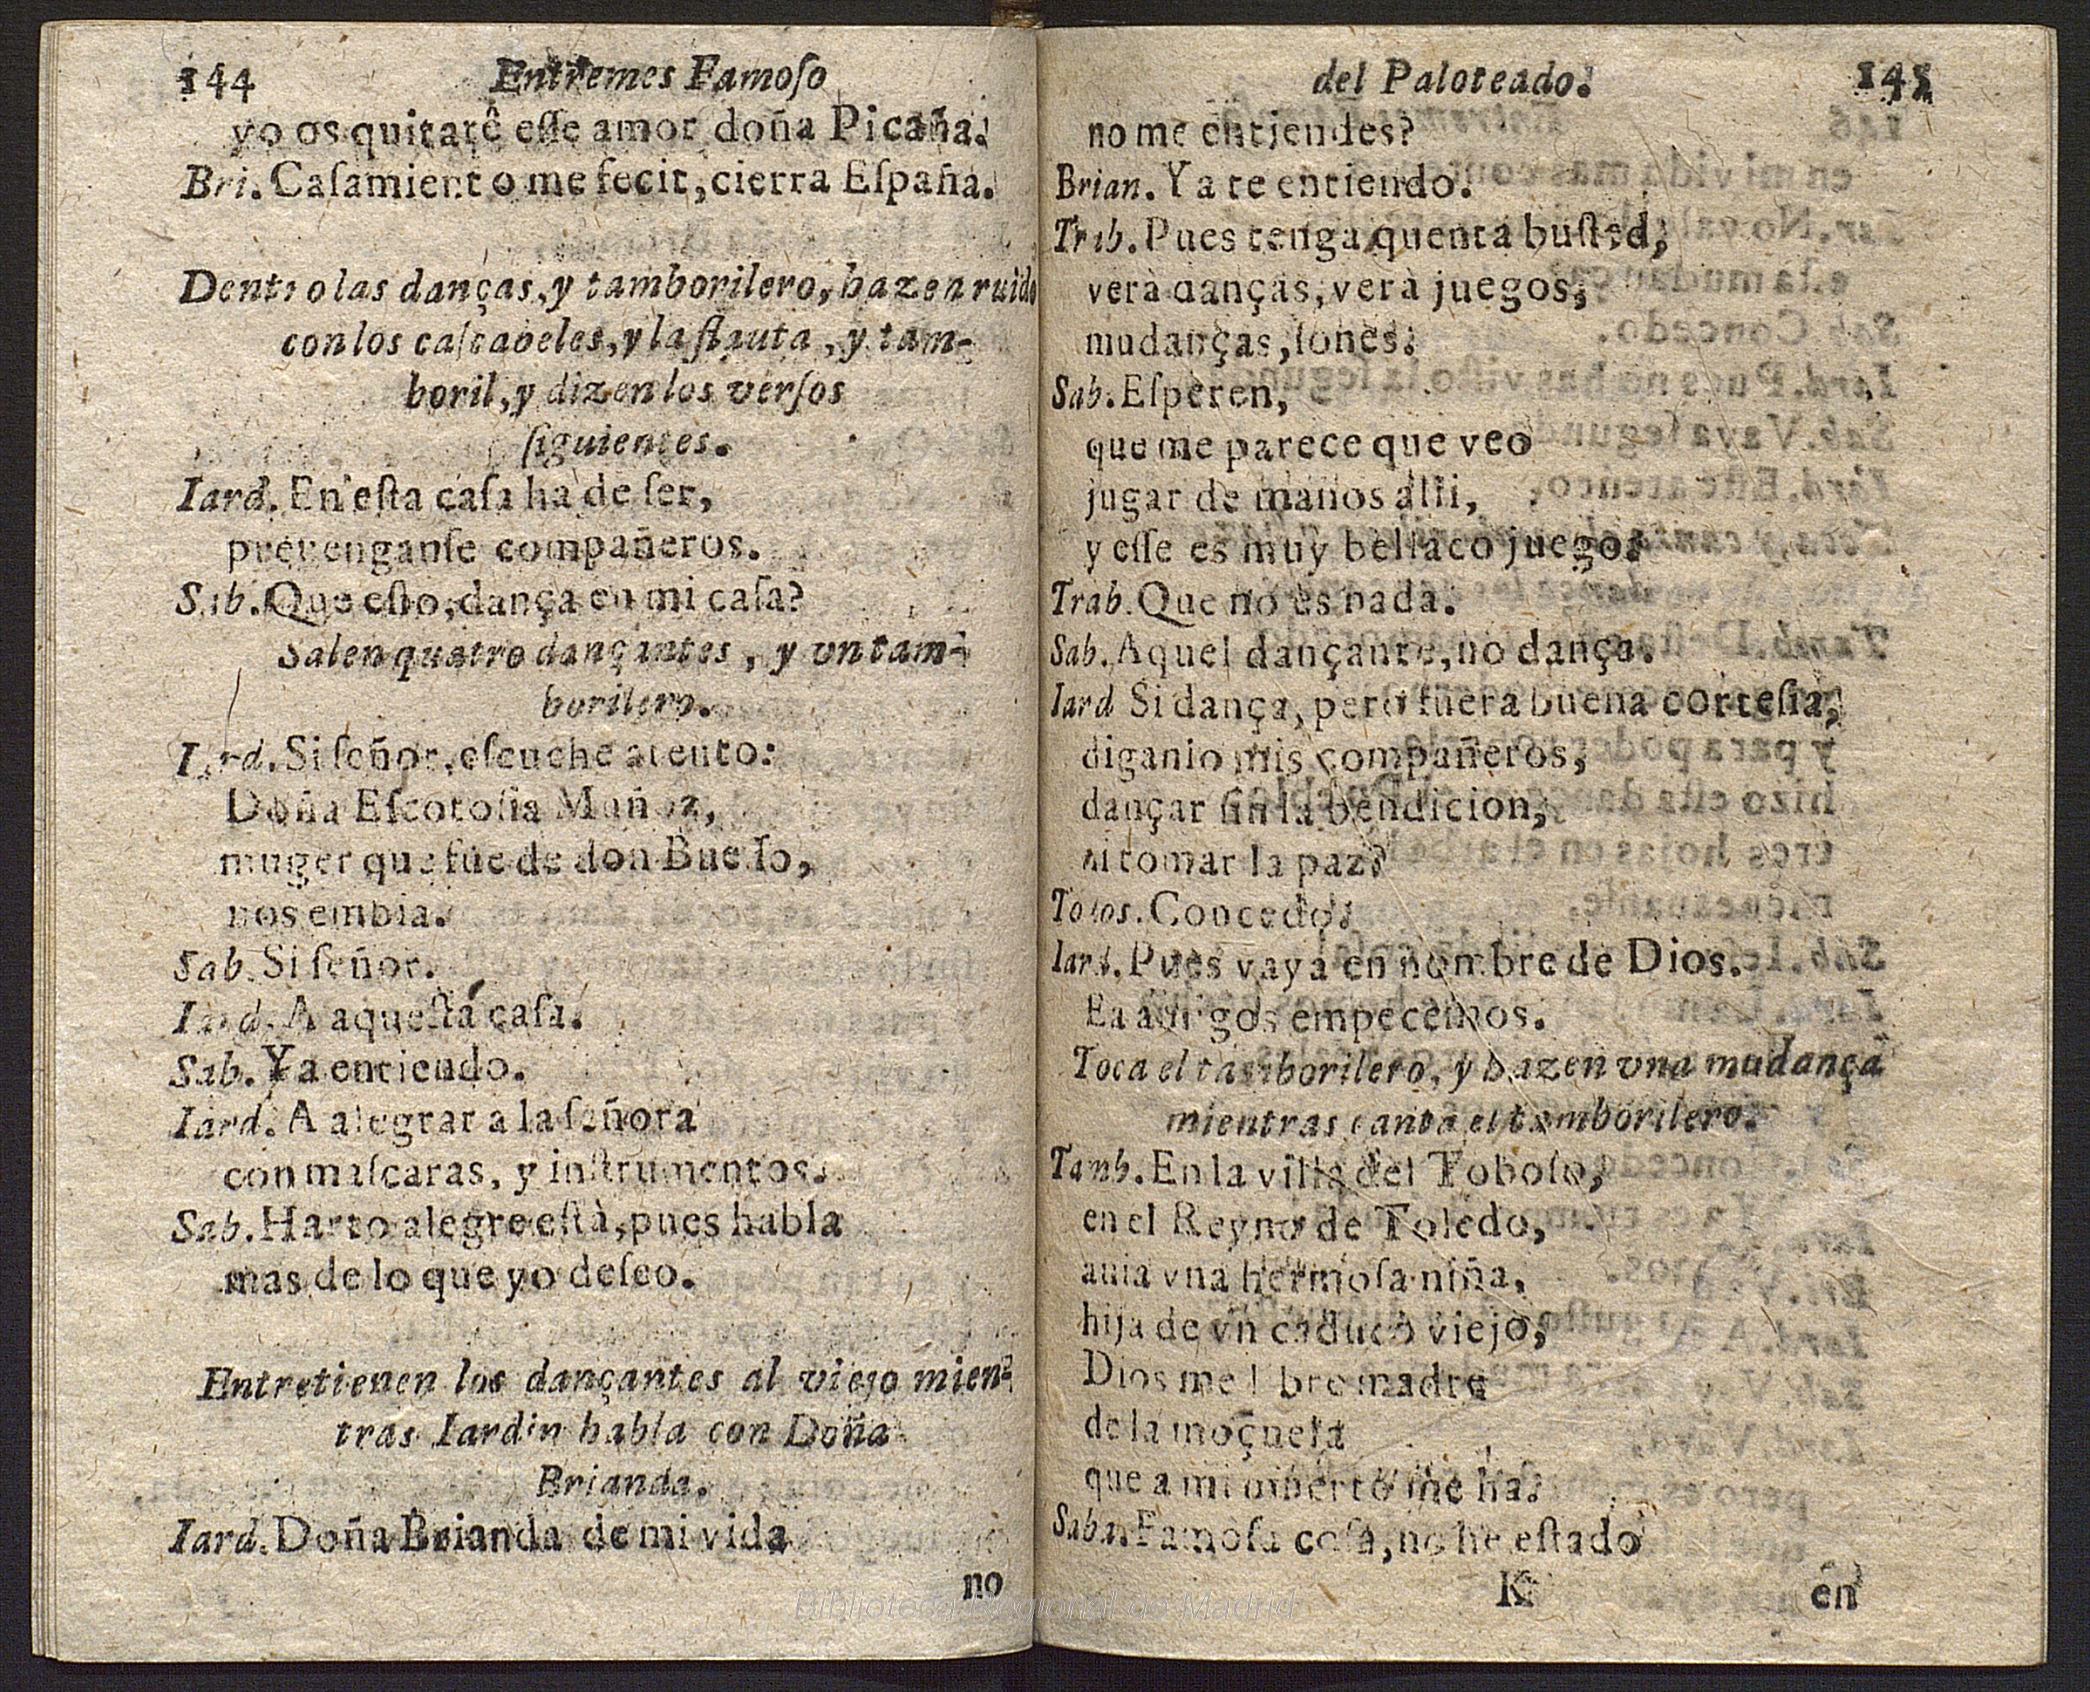 144 Entremes Famoſo
yo os quitarê eſſe amor doña Picaña.
Bri. Caſamiento me fecit, cierra Eſpaña.
Dentro las danças, y tamborilero, hazen ruido
con los caſcabeles, y la flauta, y tam-
boril, y dizen los verſos
ſiguientes.
Iard. En eſta caſa ha de ſer,
preuenganſe compañeros.
Sab. Que eſto, dança en mi caſa?
Salen quatro dançantes, y vn tam-
borilero.
Iard. Si ſeñor, eſcuche atento:
Doña Eſcotofia Muñoz,
muger que fue de don Bueſo,
nos embia.
Sab. Si ſeñor.
Iard. A aqueſta caſa.
Sab. Ya entiendo.
Iard. A alegrar a la ſeñora
con maſcaras, y inſtrumentos.
Sab. Harto alegre eſtà, pues habla
mas de lo que yo deſeo.
Entretienen los dançantes al viejo mien-
tras Iardin habla con Doña
Brianda.
Iard. Doña Brianda de mi vida
no
del Paloteado. 145
no me entiendes?
Brian. Ya te entiendo.
Trab. Pues tenga quenta buſted,
verà danças, verà juegos,
mudanças, ſones.
Sab. Eſperen,
que me parece que veo
jugar de manos alli,
y eſſe es muy bellaco juego.
Trab. Que no es nada.
Sab. Aquel dançante, no dança.
Iard Si dança, pero fuera buena corteſia,
diganlo mis compañeros,
dançar ſin la bendicion,
ni tomar la paz?
Todos. Concedo.
Iard. Pues vaya en nombre de Dios.
Ea amigos empecemos.
Toca el tamborilero, y hazen vna mudança
mientras canta el tamborilero.
Tamb. En la villa del Toboſo,
en el Reyno de Toledo,
auia vna hermoſa niña,
hija de vn caduco viejo,
Dios me libre madre
de la moçuela
que a mi muerto me ha.
Saba. Famoſa coſa, no he eſtado
K en
Biblioteca Regional de Madrid